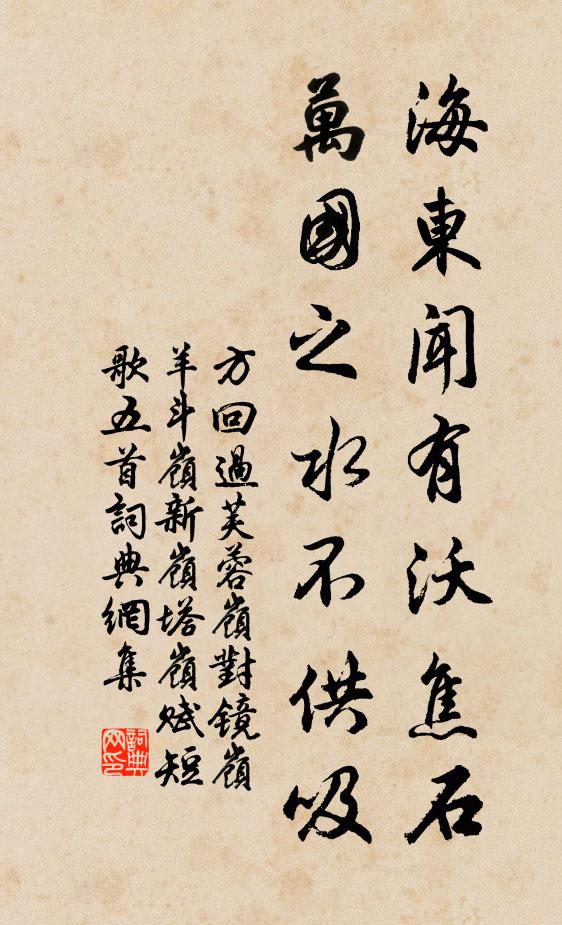 海東聞有沃焦石
萬國之水不供吸
方回過芙蓉嶺對鏡嶺
羊斗嶺新嶺塔嶺賦短
歌五首詞典網集
詞典
网印